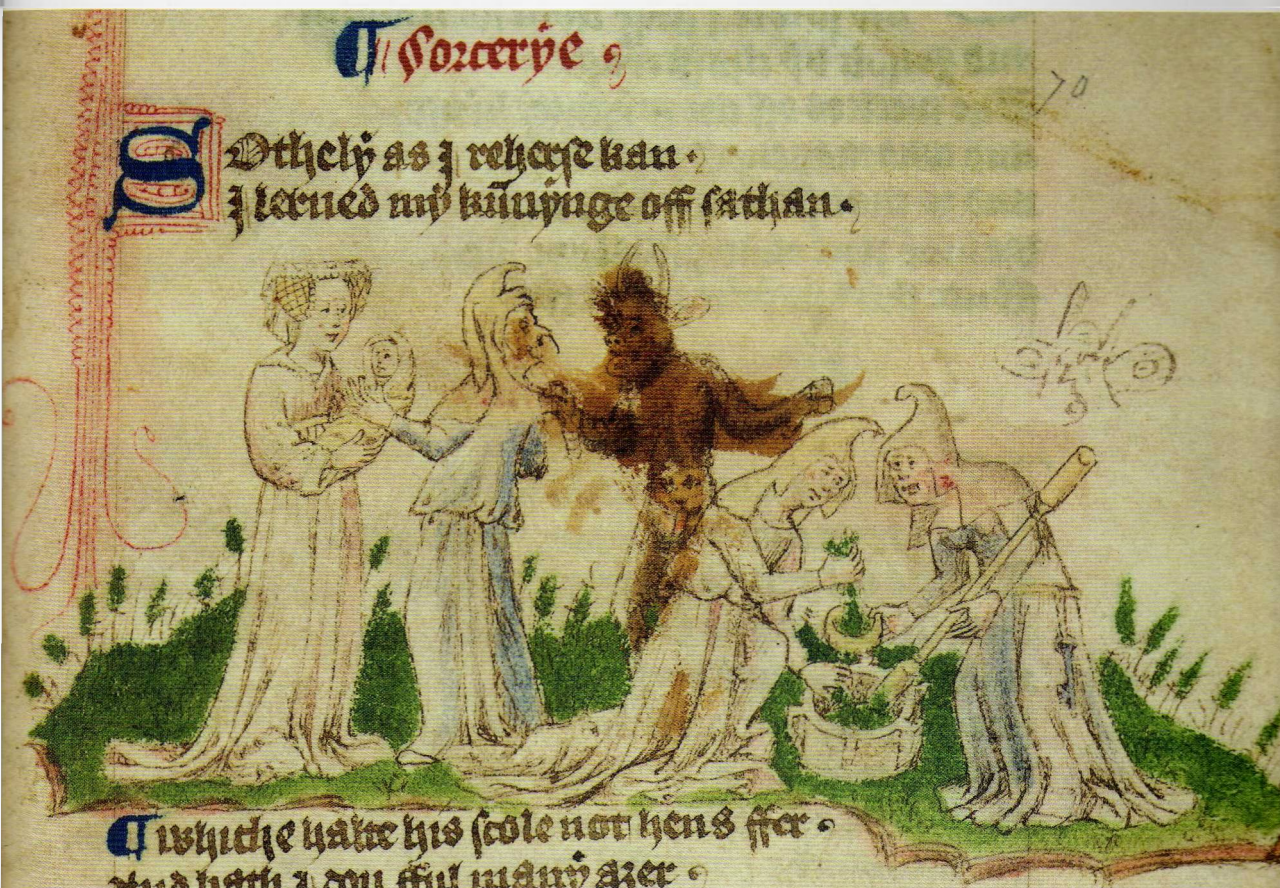 ¶ Sorcerye
Sothely as I reherse kan.
I lerned my kūnynge off sathan.
70
¶ whiche halte his scole not hens ffer.
And hath I don fful many a3er.